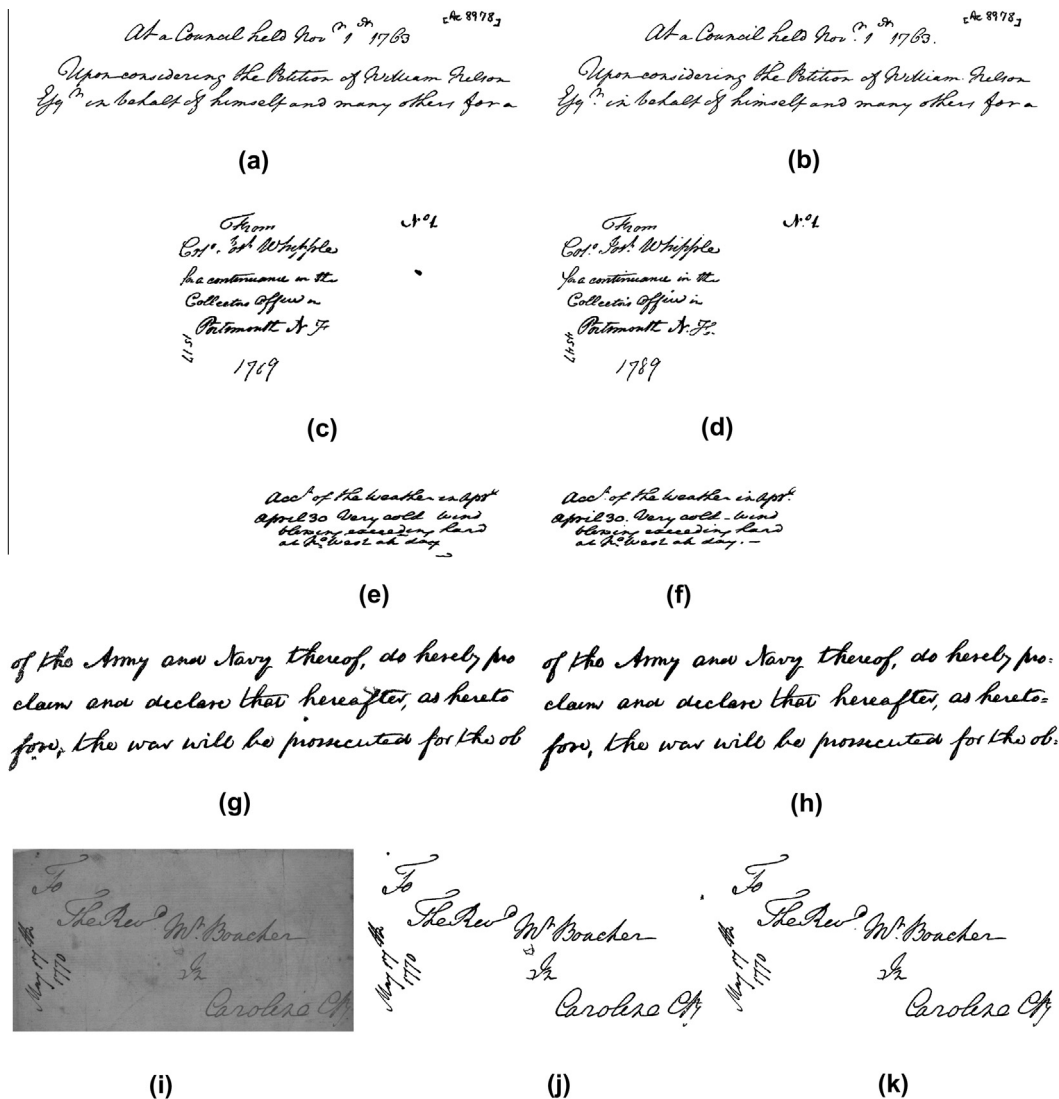 [Ac 8978]
At a Council held Novr 1st 1763
Upon considering the Petition of William Nelson
Esqr in behalf of himself and many others for a
(a)
[Ac 8978]
At a Council held Novr. 1st 1763.
Upon considering the Petition of William Nelson
Esqr. in behalf of himself and many others for a
(b)
From
No 1
Colo. Jos. Whipple
for a continuance in the
Collectors Office in
Portsmouth N. F
1517
1769
(c)
From
No. 1
Colo. Jos. Whipple
for a continuance in the
Collector's Office in
Portsmouth N. H.
4547
1789
(d)
Acct of the Weather in Apr
April 30 Very cold wind
blowing exceeding hard
at No West all day
(e)
Acct. of the Weather in Apr.
April 30. Very cold - Wind
blowing exceeding hard
at No West all day. —
(f)
of the Army and Navy thereof, do hereby pro
claim and declare that hereafter, as hereto
fore, the war will be prosecuted for the ob
(g)
of the Army and Navy thereof, do hereby pro=
claim and declare that hereafter, as hereto=
fore, the war will be prosecuted for the ob=
(h)
To
The Revd Mr. Boucher
In
Caroline Cty
May 1770
(i)
To
The Revd Mr Boucher
In
Caroline Cty
May 1770
(j)
To
The Revd. Mr. Boucher
In
Caroline Cty
May 1770
(k)